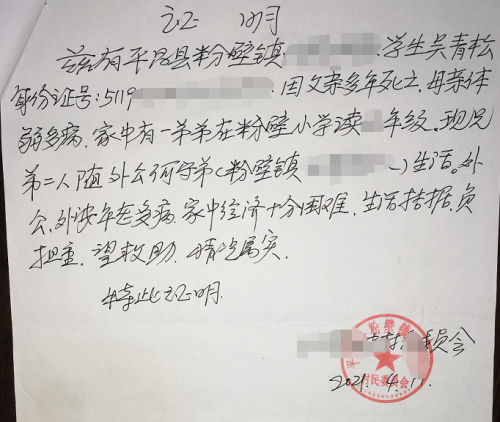 证 明
兹有平昌县粉壁镇 学生吴青松
身份证号:5119 .因父亲多年死亡.母亲体
弱多病.家中有一弟弟在粉壁小学读 年级.现兄
弟二人随外公何守弟(粉壁镇 )生活。外
公.外婆年老多病.家中经济十分困难.生活拮据.负
担重.望救助.情况属实.
特此证明.
村委员会
2021.4.11.
粉壁镇
村民委员会